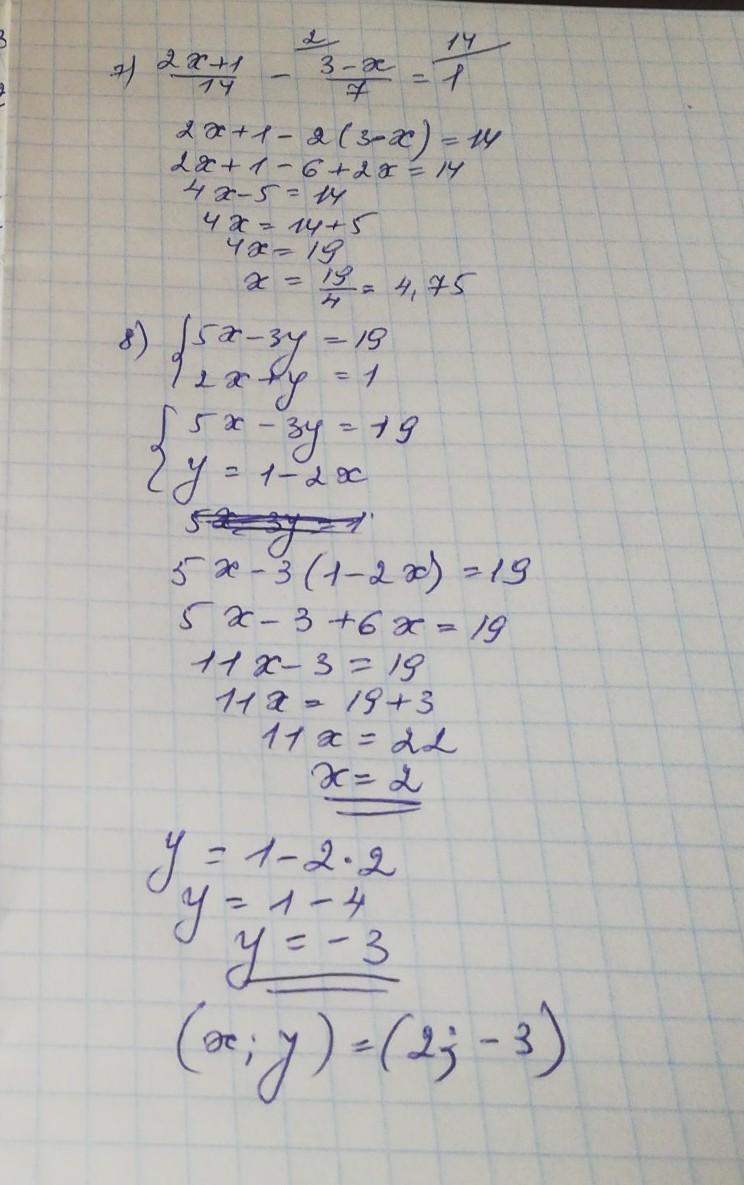 7) (2x+1)/14 - ²/(3-x)/7 = ¹⁴/1
2x+1-2(3-x)=14
2x+1-6+2x=14
4x-5=14
4x=14+5
4x=19
x=19/4=4,75
8) {5x-3y=19
2x+y=1
{5x-3y=19
y=1-2x
5x-3(1-2x)=19
5x-3+6x=19
11x-3=19
11x=19+3
11x=22
x=2
y=1-2·2
y=1-4
y=-3
(x;y)=(2;-3)